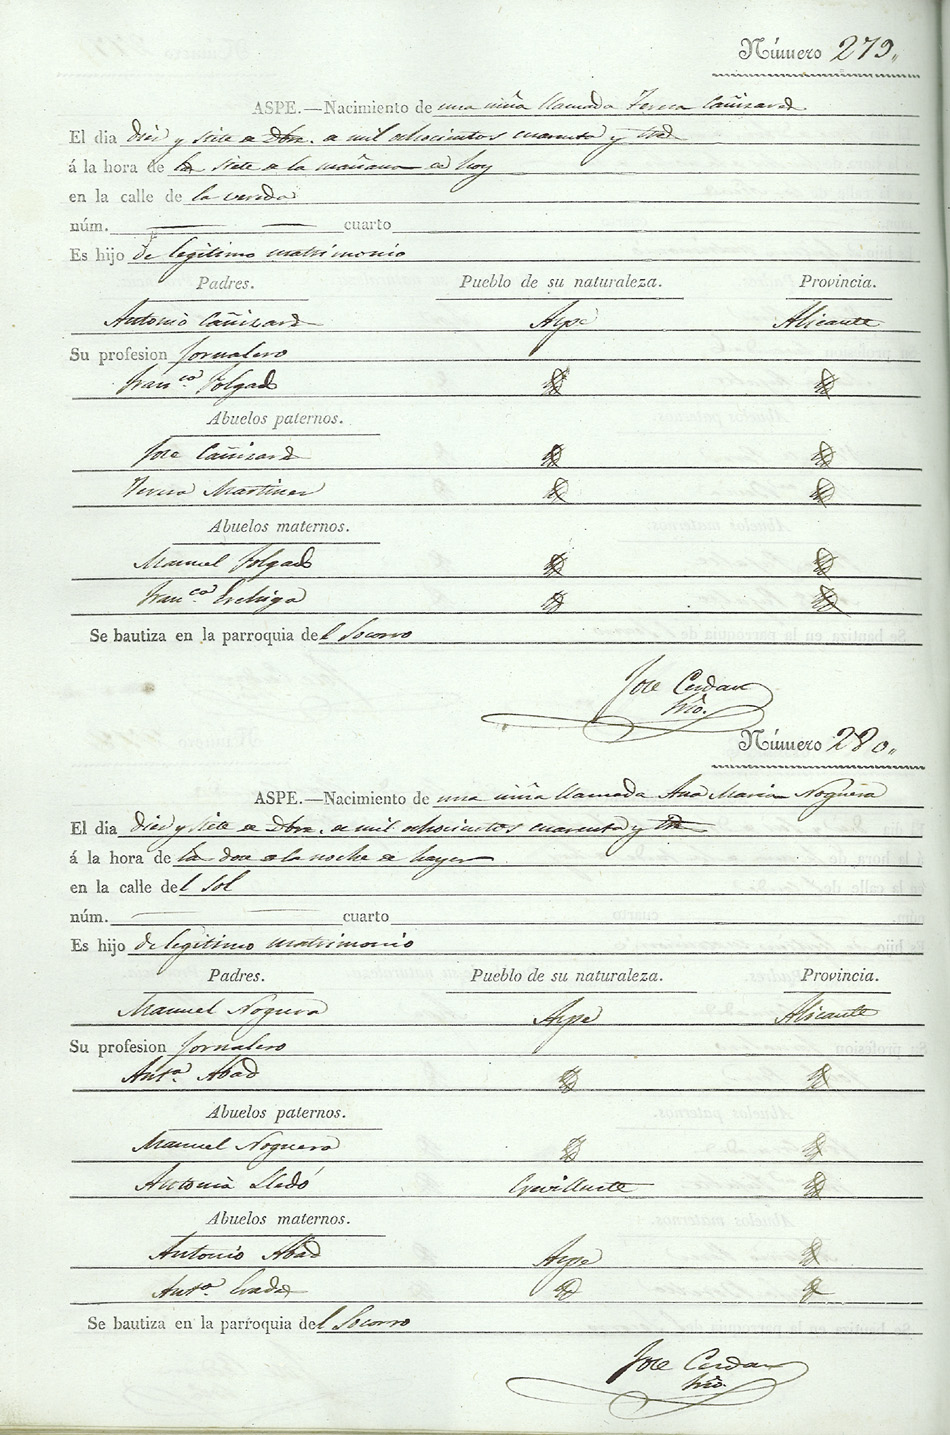 Número 279.
ASPE.—Nacimiento de una niña llamada Teresa Cañizares
El dia diez y siete de Dbre. de mil ochocientos cuarenta y tres
á la hora de las siete de la mañana de hoy
en la calle de la vereda
núm. cuarto
Es hijo de legitimo matrimonio
Padres. Pueblo de su naturaleza. Provincia.
Antonio Cañizares Aspe Alicante
Su profesion Jornalero
Fran.ca Folgado Id Id
Abuelos paternos.
Jose Cañizares Id Id
Teresa Martinez Id Id
Abuelos maternos.
Manuel Folgado Id Id
Fran.ca Id Id
Se bautiza en la parroquia del Socorro
Jose Cerdan
Srio.
Número 280.
ASPE.—Nacimiento de una niña llamada Ana Maria Noguera
El dia diez y siete de Dbre. de mil ochocientos cuarenta y tres
á la hora de las doce de la noche de hayer
en la calle del Sol
núm. cuarto
Es hijo de legitimo matrimonio
Padres. Pueblo de su naturaleza. Provincia.
Manuel Noguera Aspe Alicante
Su profesion Jornalero
Ant.a Abad Id Id
Abuelos paternos.
Manuel Noguera Id Id
Antonia Lledó Crevillente Id
Abuelos maternos.
Antonio Abad Aspe Id
Ant.a Id Id
Se bautiza en la parroquia del Socorro
Jose Cerdan
Srio.